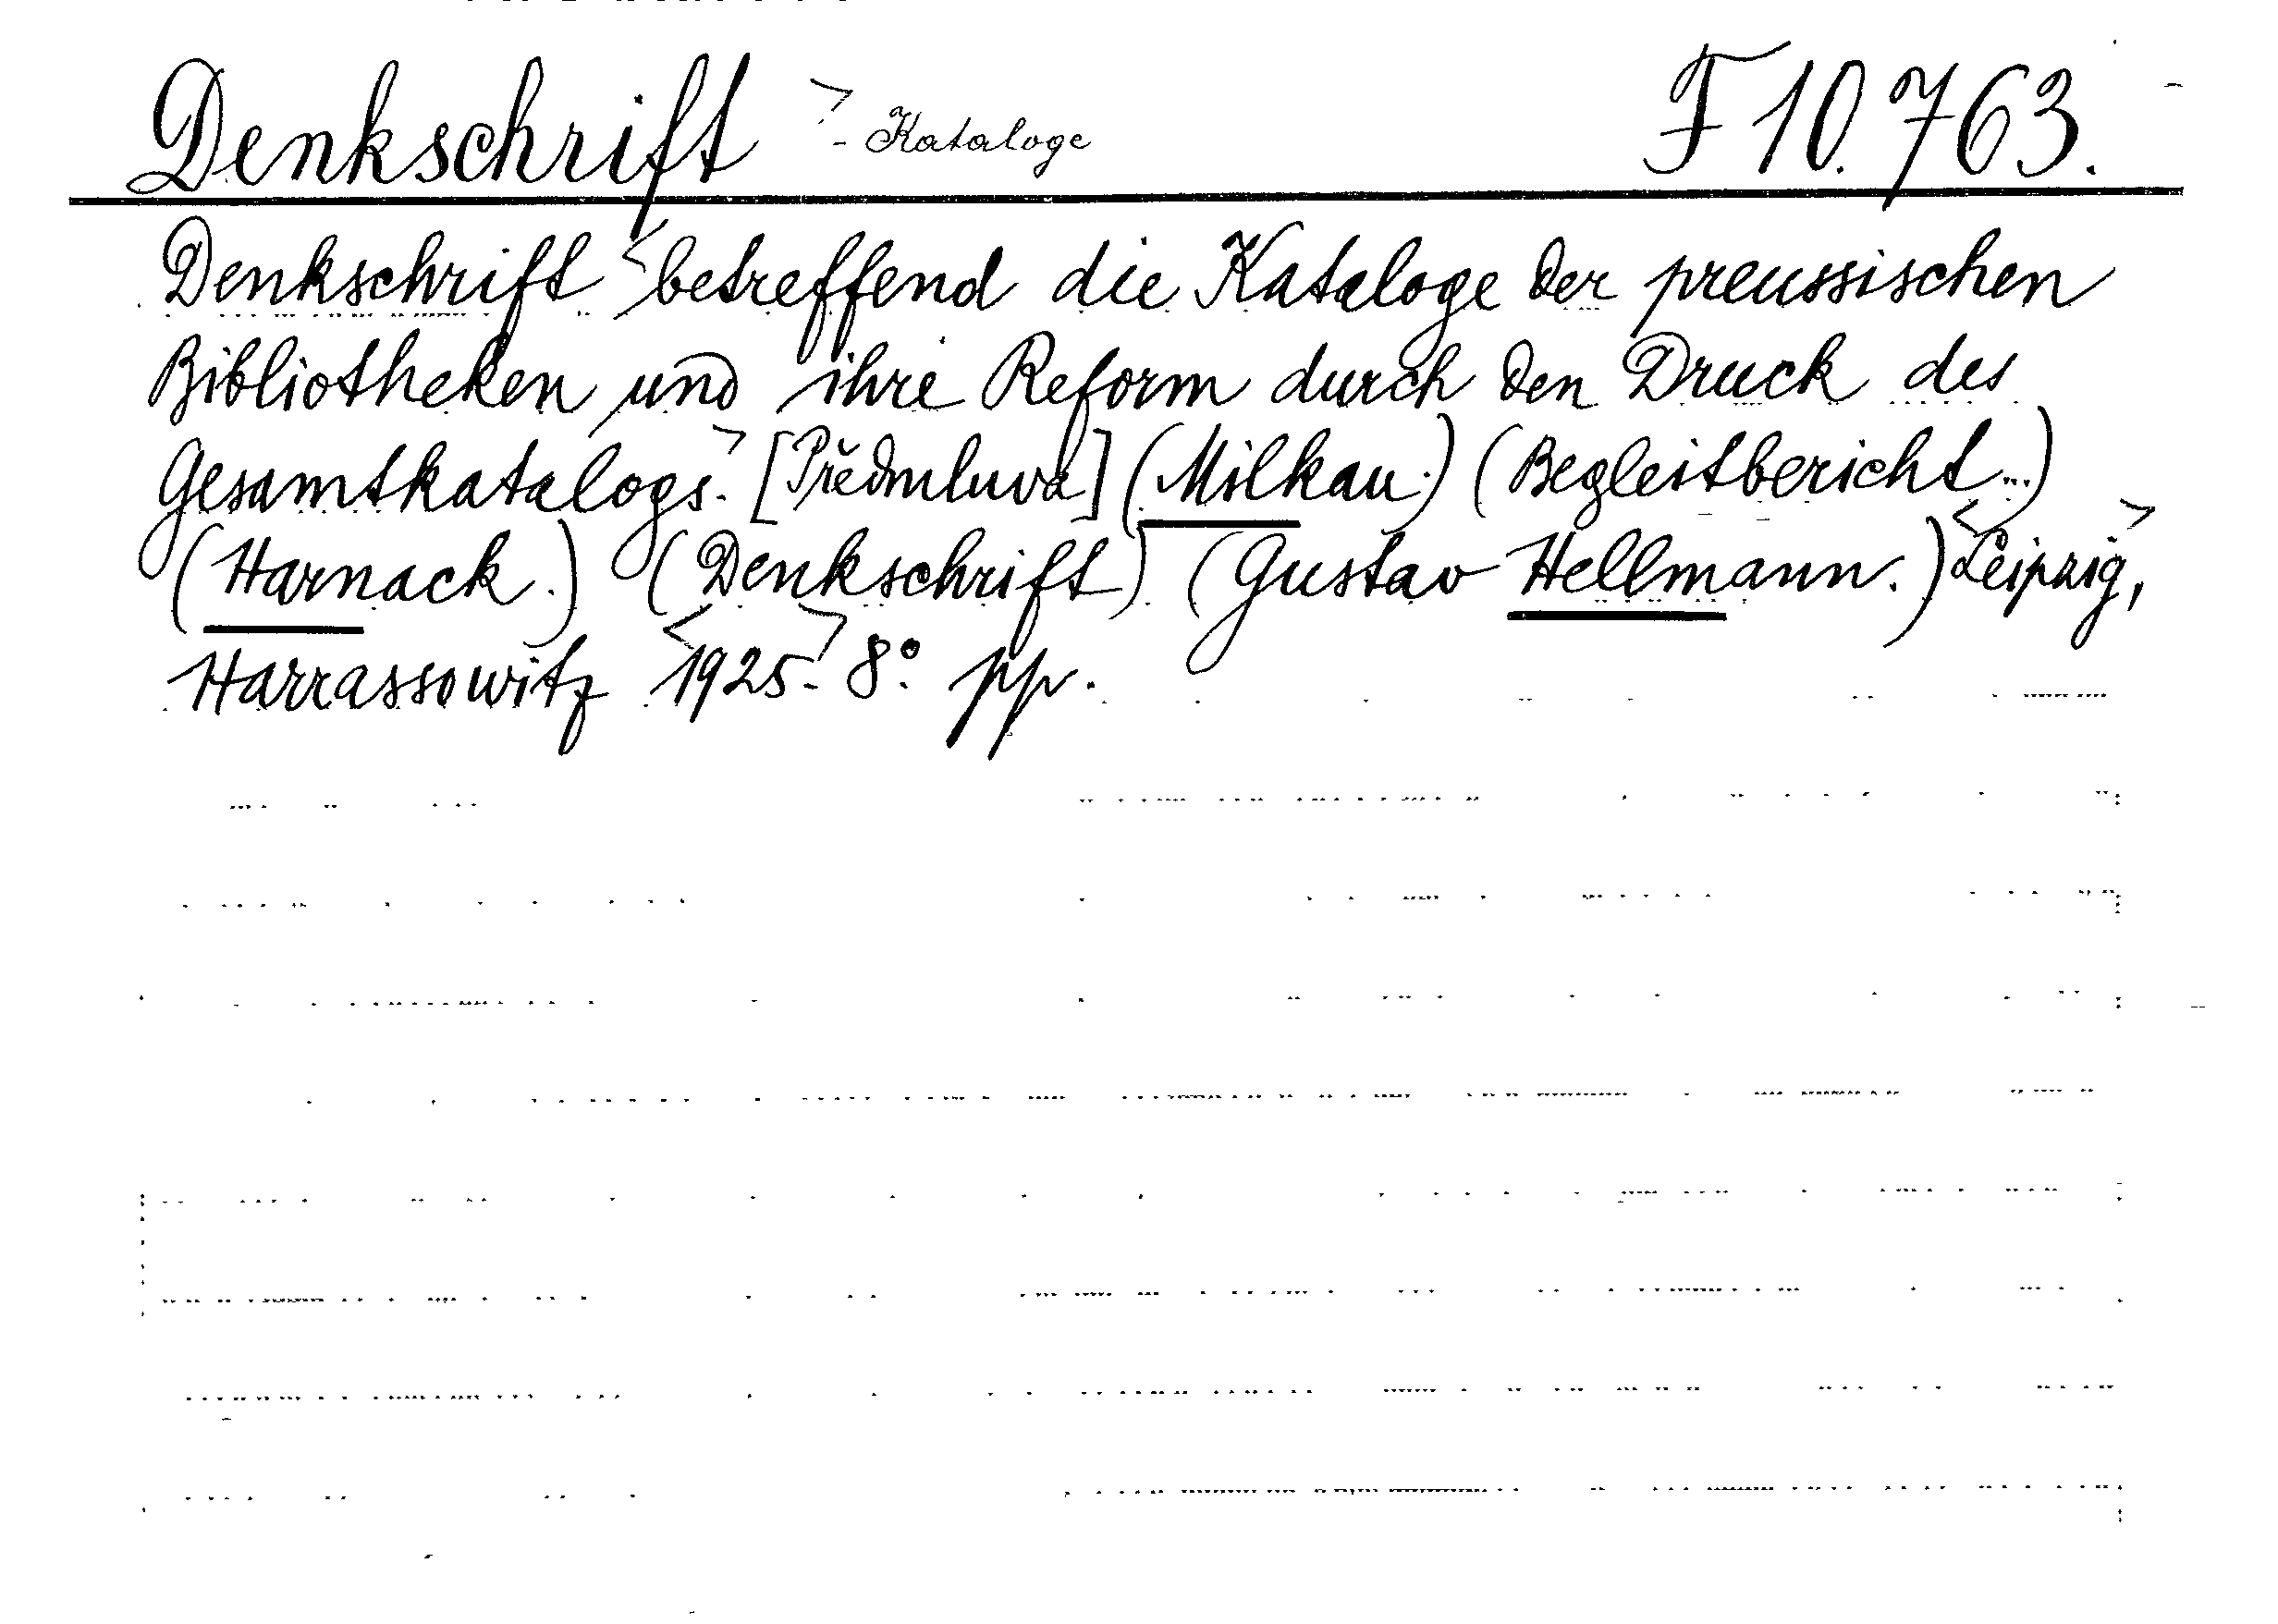 Denkschrift > - Kataloge F 10.763.
Denkschrift < betreffend die Kataloge der preussischen
Bibliotheken und ihre Reform durch den Druck des
Gesamtkatalogs.> [Předmluva] (Milkau.) (Begleitbericht...)
(Harnack.) (Denkschrift) (Gustav Hellmann.) <Leipzig,>
Harrassowitz <1925.> 8°. pp.